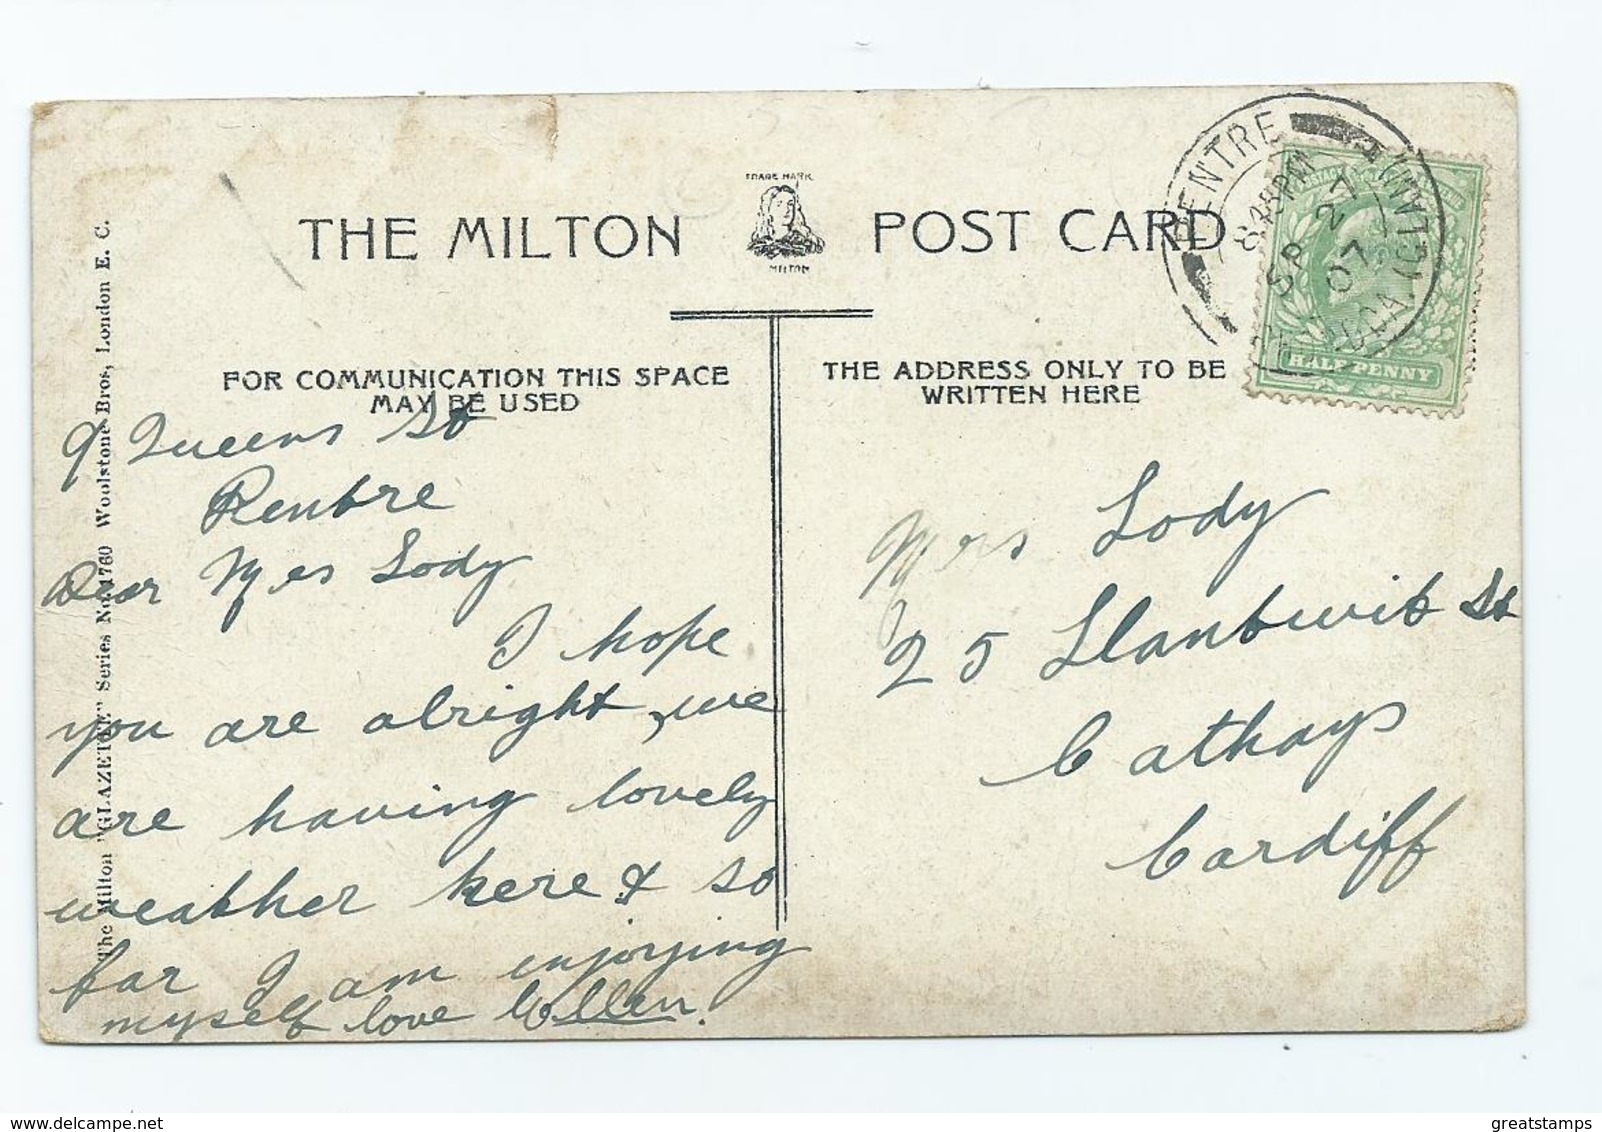 THE MILTON
TRADE MARK
MILTON
POST CARD
FOR COMMUNICATION THIS SPACE
MAY BE USED
THE ADDRESS ONLY TO BE
WRITTEN HERE
PENTRE
8.35PM
SP 27
07
HALF PENNY
The Milton "GLAZETTE" Series No. 1760 Woolstone Bros, London E. C.
9 Queens St
Pentre
Dear Mrs Lody
I hope
you are alright, we
are having lovely
weather here & so
far I am enjoying
myself love Ellen.
Mrs Lody
25 Llantwit St
Cathays
Cardiff
greatstamps